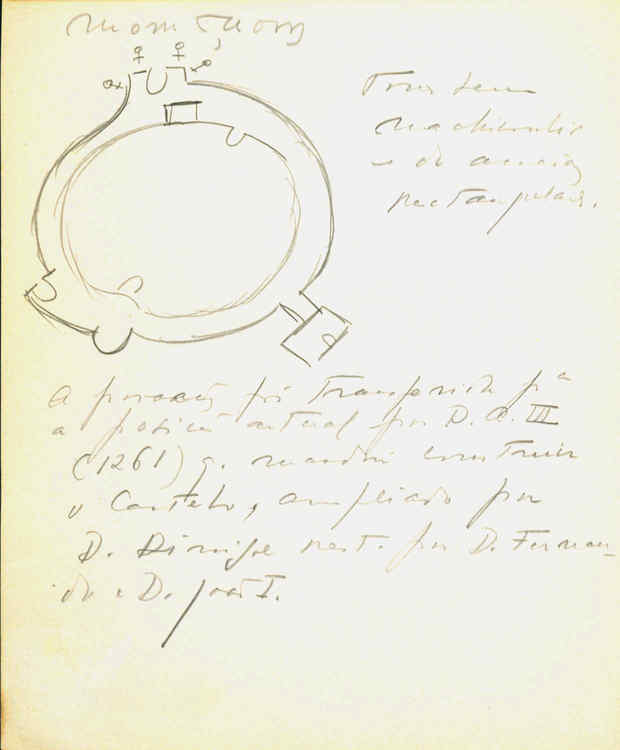 machicoulis
rectangular.
A povoação foi transferida pª
a posição actual por D. A. III
(1261) q. mandou construir
o Castelo, ampliado por
D. Dinis e rest. por D. Fernan-
do e D. João I.